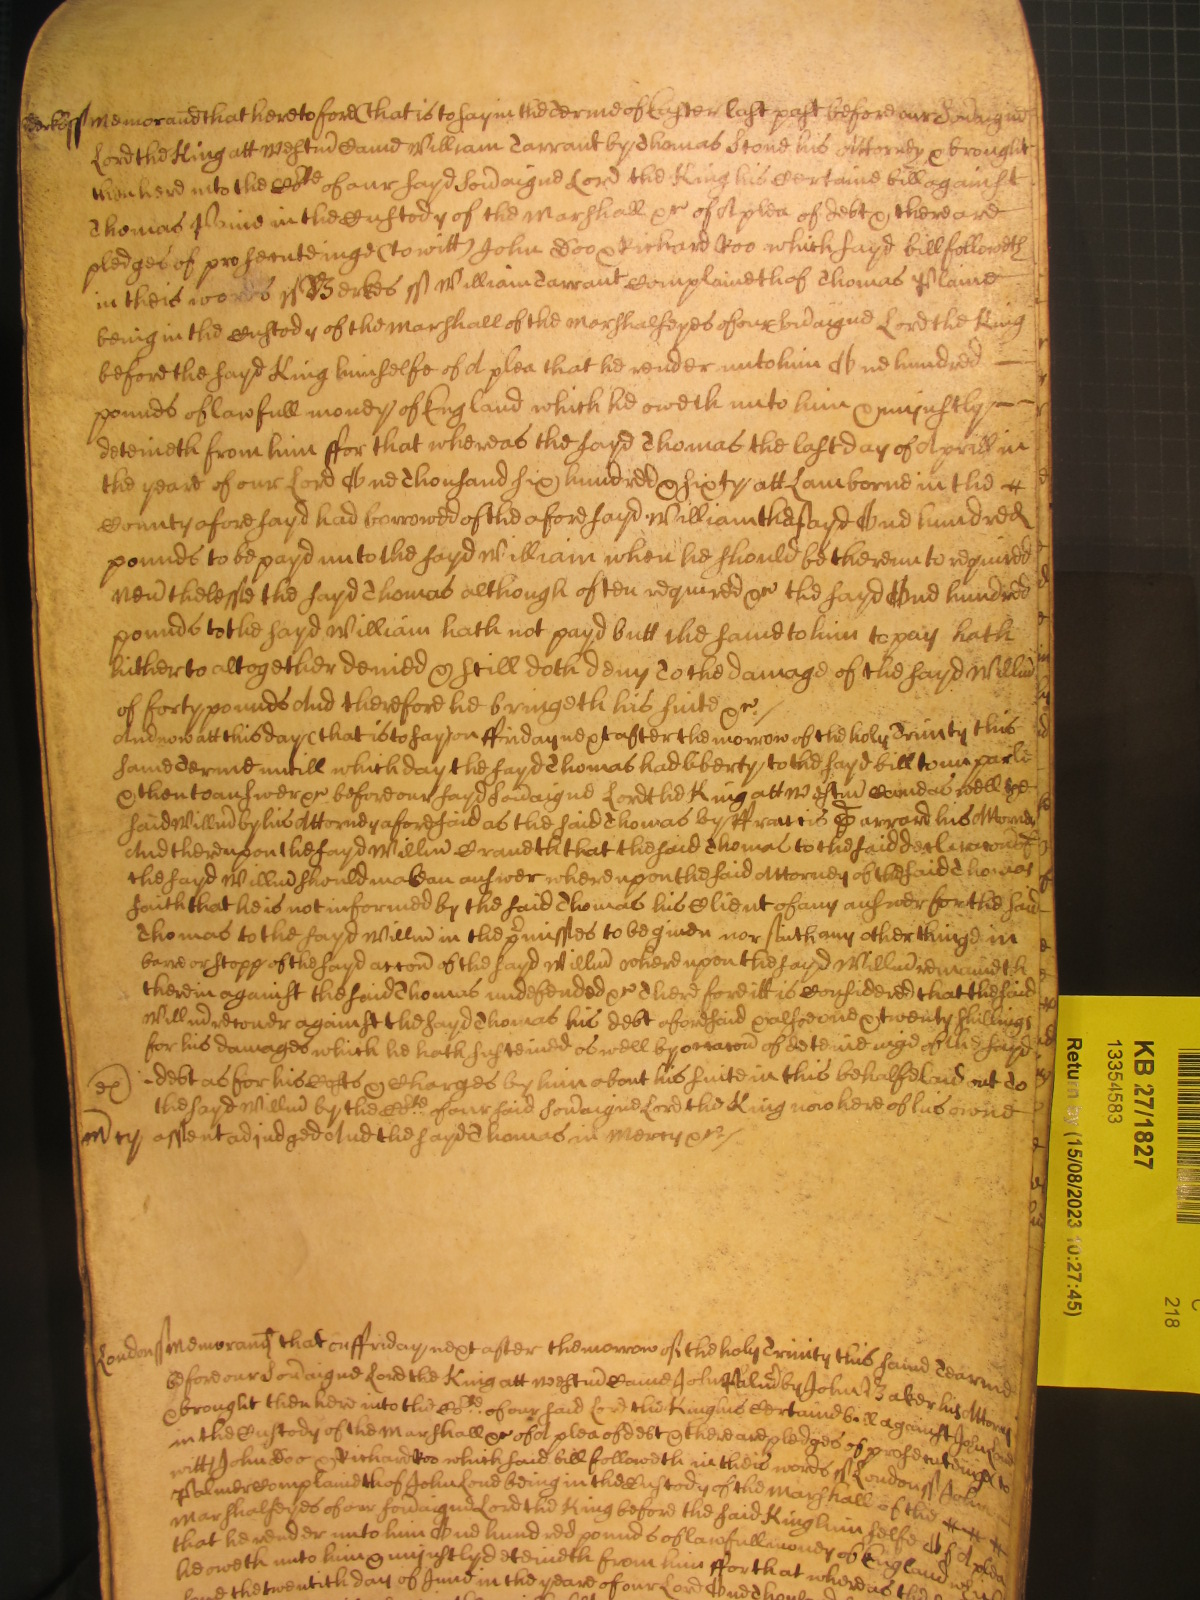 Berkes ss Memorand that heretofore (that is to say in the Terme of Easter last past before our Sov'aigne
Lord the King att Westm' Came William Tarrant by Thomas Stone his Attorney & brought
then here into the Co'te of our sayd Sov'aigne Lord the King his Certaine bill against
Thomas in the Custody of the Marshall &c of A plea of debt & there are
pledges of prosecuteinge (to witt) John Doo & Richard Roo which sayd bill followeth
in theis words ss Berkes ss William Tarrant Complaineth of Thomas
being in the Custody of the Marshall of the Marshalseyes of our Sov'aigne Lord the King
before the sayd King himselfe of A plea that he render unto him One hundred
pounds of lawfull money of England which he oweth unto him & uniustly
deteineth from him ffor that whereas the sayd Thomas the last day of Aprill in
the yeare of our Lord One Thousand six hundred & sixty att Lamborne in the
County aforesayd had borrowed of the aforesayd William the sayd One hundred
pounds to be payd unto the sayd William when he should be thereunto required
Nev'thelesse the sayd Thomas although often required &c the sayd One hundred
pounds to the sayd William hath not payd butt the same to him to pay hath
hitherto altogether denied & still doth deny To the damage of the sayd Willm'
of forty pounds And therefore he bringeth his suite &c /
And now att this day (that is to say) on ffriday next after the morrow of the holy Trinity this
same Terme untill which day the sayd Thomas had liberty to the sayd bill to imparle
& then to answer &c before our sayd Sov'aigne Lord the King att Westm' Came as well the
said Willm' by his Attorney aforesaid as the said Thomas by ffrancis his Attorney
And thereupon the sayd Willm' Craveth that the said Thomas to the said declaracon of
the sayd Willm' should make an answer whereupon the said Attorney of the said Thomas
saith that he is not informed by the said Thomas his Client of any answer for the said
Thomas to the sayd Willm' in the p'misses to be given nor saith any other thinge in
barre or stopp of the sayd accon' of the sayd Willm' whereupon the sayd Willm' remaineth
therein against the said Thomas undefended &c Therefore itt is Considered that the said
Willm' recover against the sayd Thomas his debt aforesaid & alsoe one & twenty shillings
for his damages which he hath susteined as well by occacon' of deteineinge of the sayd
ex' debt as for his Costs & Charges by him about his suite in this behalfe laid out To
the sayd Willm' by the Co'te of our said Sov'aigne Lord the King now here of his owne
M'cy assent adiudged And the sayd Thomas in Mercy &c /
London ss Memorand that on ffriday next after the morrow of the holy Trinity this same Tearme
before our Sov'aigne Lord the King att Westm' Came John Palmer by John Baker his Attorney
& brought then here into the Co'te of our said Lord the King his Certaine bill against John
in the Custody of the Marshall &c of A plea of debt & there are pledges of prosecuteinge (to
witt) John Doo & Richard Roo which said bill followeth in theis words ss London ss John
Palmer Complaineth of John being in the Custody of the Marshall of the
Marshalseyes of our Sov'aigne Lord the King before the said King him selfe Of A plea
that he render unto him One hundred pounds of lawfull money of England which
he oweth unto him & uniustly deteineth from him ffor that whereas the
the twentith day of June in the yeare of our Lord One
KB 27/1827
13354583
Return by (15/08/2023 10:27:45)
218